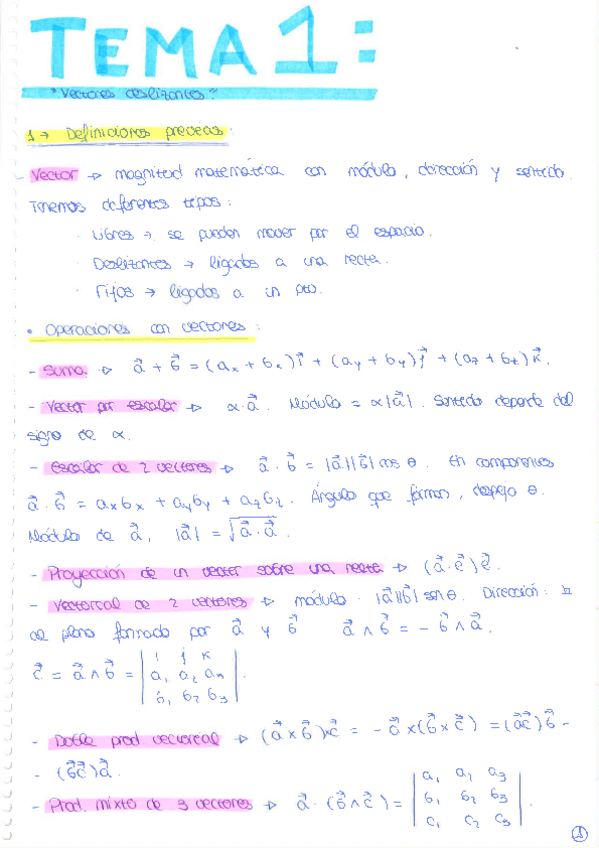 TEMA 1:
"Vectores deslizantes"
1 → Definiciones previas:
- Vector → magnitud matemática con módulo, dirección y sentido.
Tenemos diferentes tipos:
· Libres → se pueden mover por el espacio.
· Deslizantes → ligados a una recta.
· Fijos → ligados a un pto.
• Operaciones con vectores:
- Suma → a⃗ + b⃗ = (ax + bx) i⃗ + (ay + by) j⃗ + (az + bz) k⃗.
- Vector por escalar → α·a⃗. Módulo = α|a⃗|. Sentido depende del
signo de α.
- Escalar de 2 vectores → a⃗ · b⃗ = |a⃗||b⃗| cos θ. En componentes
a⃗ · b⃗ = axbx + ayby + azbz. Ángulo que forman, despejo θ.
Módulo de a⃗, |a⃗| = √(a⃗ · a⃗).
- Proyección de un vector sobre una recta → (a⃗ · e⃗) e⃗.
- Vectorial de 2 vectores → módulo · |a⃗||b⃗| sen θ. Dirección: ⊥
al plano formado por a⃗ y b⃗ a⃗ ∧ b⃗ = - b⃗ ∧ a⃗.
i j k
c⃗ = a⃗ ∧ b⃗ = | a1 a2 a3 |.
b1 b2 b3
- Doble prod vectorial → (a⃗ x b⃗) x c⃗ = - a⃗ x (b⃗ x c⃗) = (a⃗c⃗) b⃗ -
- (b⃗c⃗) a⃗.
a1 a2 a3
- Prod. mixto de 3 vectores → a⃗ · (b⃗ ∧ c⃗) = | b1 b2 b3 |.
c1 c2 c3
1